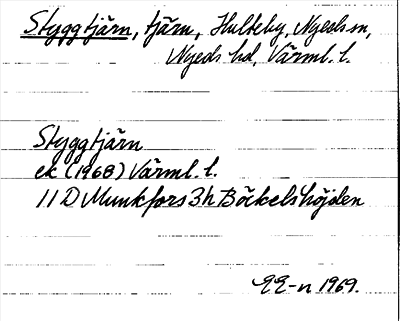 Styggtjärn, tjärn, Hulteby, Nyeds sn,
Nyeds hd, Värml. l.
Styggtjärn
ek (1968) Värml. l.
11 D Munkfors 3h Böckelshöjden
EE-n 1969.